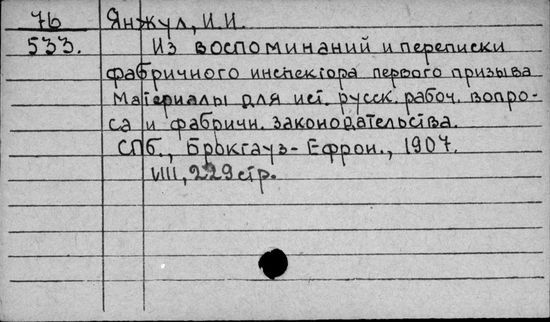 76 Янжул, И.И.
533. Из воспоминаний и переписки
фабричного инспектора первого призыва
Материалы для ист. русск. рабоч. вопро-
са и фабричн. законодательства.
СПб., Брокгауз-Ефрон., 1907.
VIII, 229 стр.